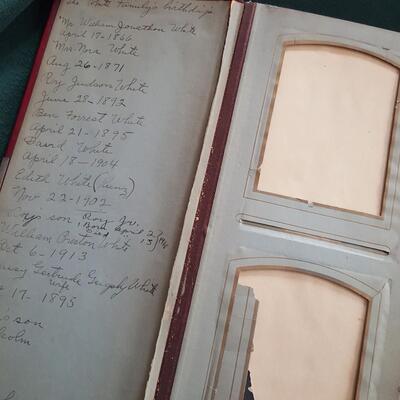 The White Family's birthdays
Mr. William Jonathan White
April 17-1866
Mrs. Nora White
Aug 26-1871
Roy Judson White
June 28-1892
Ben Forrest White
April 21-1895
David White
April 18-1904
Edith White
Nov 22-1902
son Roy Jr.
Born April 2
Died 13
William Preston White
Oct 6-1913
Gertrude White
wife
17-1895
son